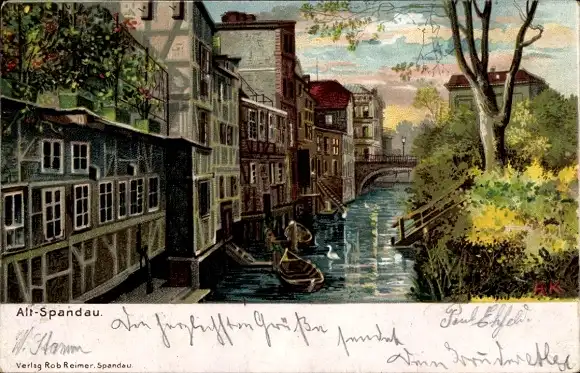 Alt-Spandau.
Die herzlichsten Grüße sendet
Paul
Dein Bruder
W. Stamm
Verlag Rob Reimer, Spandau.